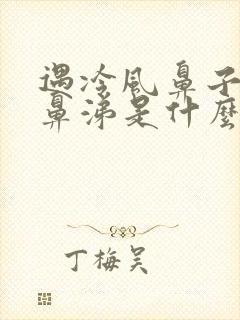 遇冷风鼻子
鼻涕是什麼
丁梅吴